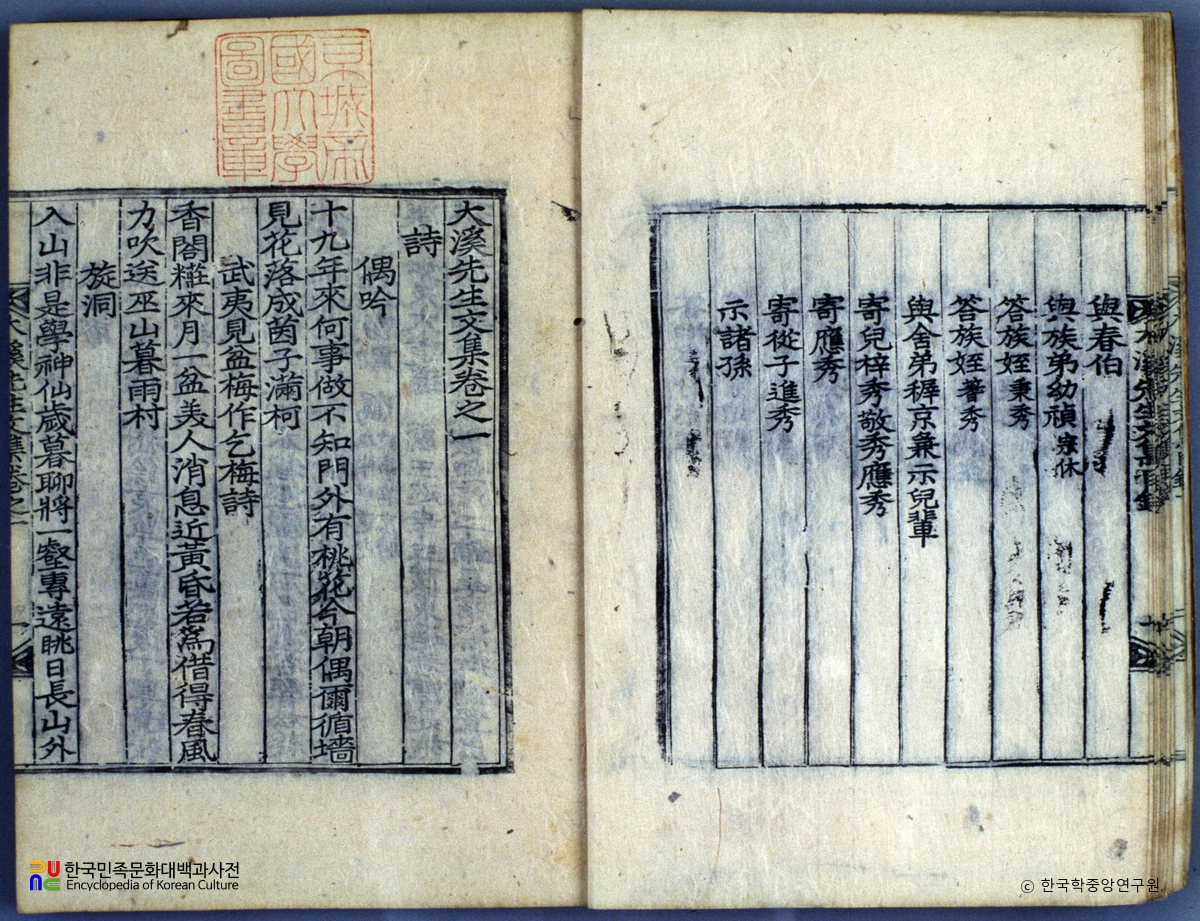 與春伯
與族弟幼禎 宗休
答族姪秉秀
答族姪蓍秀
與舍弟穉京兼示兒輩
寄兒梓秀敬秀應秀
寄應秀
寄從子進秀
示諸孫
京城帝
國大學
圖書章
大溪先生文集卷之一
詩
偶吟
十九年來何事做不知門外有桃花今朝偶爾循墻
見花落成茵子滿柯
武夷見盆梅作乞梅詩
香閤糚來月一盆美人消息近黃昏若爲借得春風
力吹送巫山暮雨村
旋洞
入山非是學神仙歲暮聊將一壑專遠眺日長山外
한국민족문화대백과사전
Encyclopedia of Korean Culture
© 한국학중앙연구원